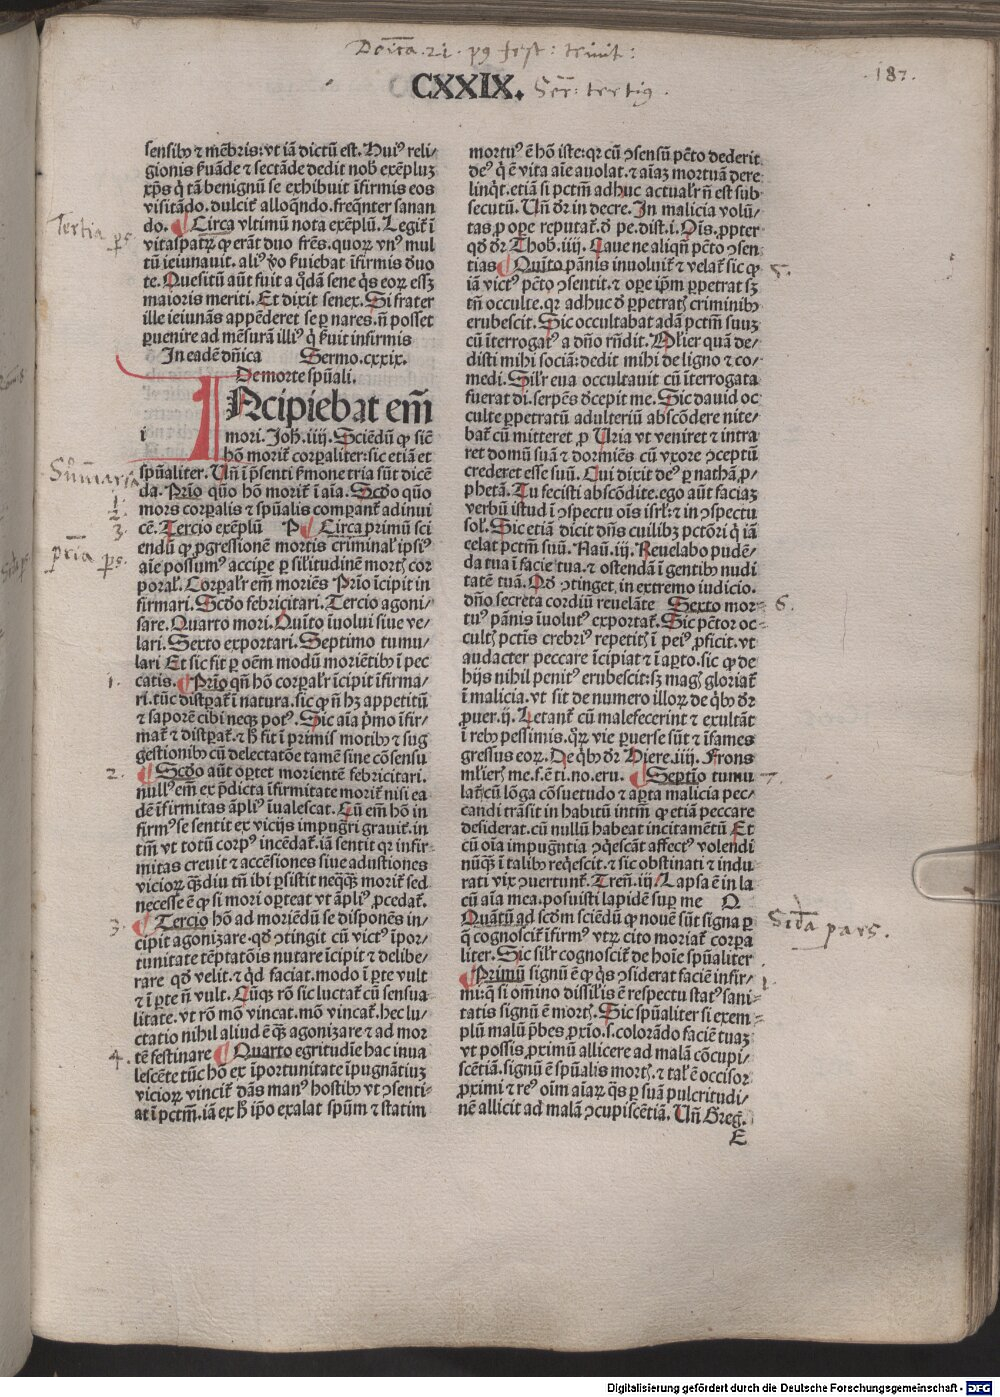 Dōica .21. p9 fest: trinit:
CXXIX. Ser: tertiꝰ.
187.
sensibꝰ ⁊ mēbris: vt iā dictū est. Huiꝰ reli/
gionis ẜuāde ⁊ sectāde dedit nobꝭ exēpluꝫ
xp̄s q̇ tā benignū se exhibuit īfirmis eos
visitādo. dulcit̉ alloqn̄do. freqn̄ter sanan
do. Circa vltimū nota exēplū. Legit̉ ī
vitaspatꝝ ꝙ erāt duo fres. quoꝝ vnꝰ mul
tū ieiunauit. aliꝰ v̄o ẜuiebat īfirmis d̓uo
te. Quesitū aūt fuit a qͦdā sene qͥs eoꝝ essꝫ
maioris meriti. Et dixit senex. Si frater
ille ieiunās appēderet se ꝑ nares. n̄ posset
ꝑuenire ad mēsurā illiꝰ q̇ ẜuit infirmis
In eadē dn̄ica Sermo. cxxix.
De morte spūali.
INcipiebat em̄
i
mori. Joh̓. iiij. Sciēdū ꝙ sic̄
hō morit̉ corꝑaliter: sic etiā et
spūaliter. Un̄ ī p̄senti ẜmone tria sūt dicē
da. Prīo quō hō morit̉ ī aīa. Scd̓o quō
mors corꝑalis ⁊ spūalis comparant̉ ad inui
cē. Tercio exēplū P Circa primū sci
endū ꝙ ꝓgressionē mortis criminal̓ ipsiꝰ
aīe possumꝰ accipe ꝑ sil̓itudinē mortꝭ cor
poral̓. Corꝑal̓r em̄ moriēs Prīo īcipit in
firmari. Scd̓o febricitari. Tercio agoni/
sare. Quarto mori. Quīto īuolui siue ve/
lari. Sexto exportari. Septimo tumu/
lari Et sic fit ꝑ oēm modū moriētibꝰ ī pec
catis. Prīo qn̄ hō corꝑal̓r īcipit īfirma/
ri. tūc distꝑat̉ ī natura. sic ꝙ n̄ hꝫ appetitū
⁊ saporē cibi neqꝫ potꝰ. Sic aīa pͥmo īfir/
mat̉ ⁊ distꝑat̉. ⁊ h̄ fit ī primis motibꝰ ⁊ sug
gestionibꝰ cū delectatōe tamē sine cōsensu
Scd̓o aūt oꝑtet morientē febricitari.
nullꝰ em̄ ex p̄dicta īfirmitate morit̉ nisi ea
dē īfirmitas āpliꝰ īualescat. Cū em̄ hō in
firmꝰ se sentit ex vicijs impugn̄ri grauit̉. in
tm̄ vt totū corpꝰ incēdat̉. iā sentit qꝛ infir/
mitas creuit ⁊ accēsiones siue adustiones
vicioꝝ. qͣꝫdiu tn̄ ibi ꝑsistit neqͣꝫ̄ morit̉ sed
necesse ē ꝙ si mori oꝑteat vt āpliꝰ ꝓcedat̉.
Tercio hō ad moriēdū se disponēs in/
cipit agonizare. qd̓ ꝯtingit cū victꝰ īpor/
tunitate tēptatōnis nutare īcipit ⁊ delibe/
rare qd̓ velit. ⁊ qͥd faciat. modo ī ꝑte vult
⁊ ī ꝑte n̄ vult. Cūqꝫ rō sic luctat̉ cū sensua
litate. vt rō mō vincat. mō vincat̉. hec lu/
ctatio nihil aliud ē qͣꝫ agonizare ⁊ ad mor
tē festinare Quarto egritudīe hac inua
lescēte tūc hō ex īportunitate īpugnātiuꝫ
vicioꝝ vincit̉ dās manꝰ hostibꝰ vt ꝯsenti/
at ī pctm̄. iā ex h̄ ip̄o exalat spūm ⁊ statim
mortuꝰ ē hō iste: qꝛ cū ꝯsensū pctō dederit
deꝰ q̇ ē vita aīe auolat. ⁊ aīaꝫ mortuā dere
linqͥt. etiā si pctm̄ adhuc actual̓r n̄ est sub
secutū. Un̄ dr̄ in decre. In malicia volū/
tas ꝓ oꝑe reputat̉. d̓ pe. dist. i. Oīs. ꝓpter
qd̓ dr̄ Thob. iiij. Caue ne aliqn̄ pctō ꝯsen
tias Quīto pānis inuoluit̉ ⁊ velat̉ sic ꝙ
iā victꝰ pctō ꝯsentit. ⁊ oꝑe ip̄m ꝑpetrat sꝫ
tn̄ occulte. qꝛ adhuc d̓ ꝑpetratꝭ criminibꝰ
erubescit. Sic occultabat adā pctm̄ suuꝫ
cū īterrogatꝰ a dn̄o rn̄dit. Ml̓ier quā de/
disti mihi sociā: dedit mihi de ligno ⁊ co/
medi. Sil̓r eua occultauit cū īterrogata
fuerat di. serpēs d̓cepit me. Sic dauid oc
culte ꝑpetratū adulteriū abscōdere nite/
bat̉ cū mitteret ꝓ Uria vt veniret ⁊ intra
ret domū suā ⁊ dormiēs cū vxore ꝯceptū
crederet esse suū. Cui dixit deꝰ ꝑ nathā ꝓ/
phetā. Tu fecisti abscōdite. ego aūt faciaꝫ
verbū istud ī ꝯspectu oīs isrl̓: ⁊ in ꝯspectu
sol̓. Sic etiā dicit dn̄s cuilibꝫ pctōri q̇ iā
celat pctm̄ suū. Naū. iij. Reuelabo pudē/
da tua ī facie tua. ⁊ ostendā ī gentibꝰ nudi
tatē tuā. Qd̓ ꝯtinget in extremo iudicio.
dn̄o secreta cordiū reuelāte Sexto mor
tuꝰ pānis īuolutꝰ exportat̉. Sic pctōr oc/
cultꝭ pctis crebriꝰ repetitꝭ ī peiꝰ ꝓficit. vt
audacter peccare īcipiat ⁊ ī aꝑto. sic ꝙ de
hijs nihil penitꝰ erubescit: sꝫ magꝭ gloriat̉
ī malicia. vt sit de numero illoꝝ de qͥbꝰ dr̄
ꝓuer. ij. Letant̉ cū malefecerint ⁊ exultāt
ī rebꝰ pessimis. qͦꝝ vie ꝑuerse sūt ⁊ īfames
gressus eoꝝ. De qͥbꝰ dr̄ Hiere. iij. Frons
ml̓ierꝭ me. f. ē ti. no. eru. Septīo tumu
lat̉ cū lōga cōsuetudo ⁊ aꝑta malicia pec/
candi trāsit in habitū intm̄ ꝙ etiā peccare
desiderat. cū nullū habeat incitamētū Et
cū oīa impugn̄tia ꝯqͥescāt affectꝰ volendi
nūqͣꝫ ī talibꝰ reqͥescit. ⁊ sic obstinati ⁊ indu
rati vix ꝯuertunt̉. Tren̄. iij. Lapsa ē in la
cū aīa mea. posuisti lapidē suꝑ me Q
Quātū ad scd̓m sciēdū ꝙ nouē sūt signa ꝑ
q̄ cognoscit̉ īfirmꝰ vtꝝ cito moriat̉ corꝑa
liter. Sic sil̓r cognoscit̉ de hoīe spūaliter
Primū signū ē ꝙ qͥs ꝯsiderat faciē infir/
mi: q̄ si om̄ino dissil̓is ē respectu statꝰ sani/
tatis signū ē mortꝭ. Sic spūaliter si exem/
plū malū p̄bes ꝓxīo. s. colorādo faciē tuaꝫ
vt possis ꝓximū allicere ad malā cōcupi/
scētiā. signū ē spūalis mortꝭ. ⁊ tal̓ ē occisor
ꝓximi ⁊ reꝰ oīm aīaꝝ qͣs ꝑ suā pulcritudi/
nē allicit ad malā ꝯcupiscētiā. Un̄ Greg̓.
E
Tertia ps
Sūmaria
1.
2.
3.
pria ps.
1.
2.
3.
4.
5.
6.
7.
Scda pars.
1.
Digitalisierung gefördert durch die Deutsche Forschungsgemeinschaft - DFG